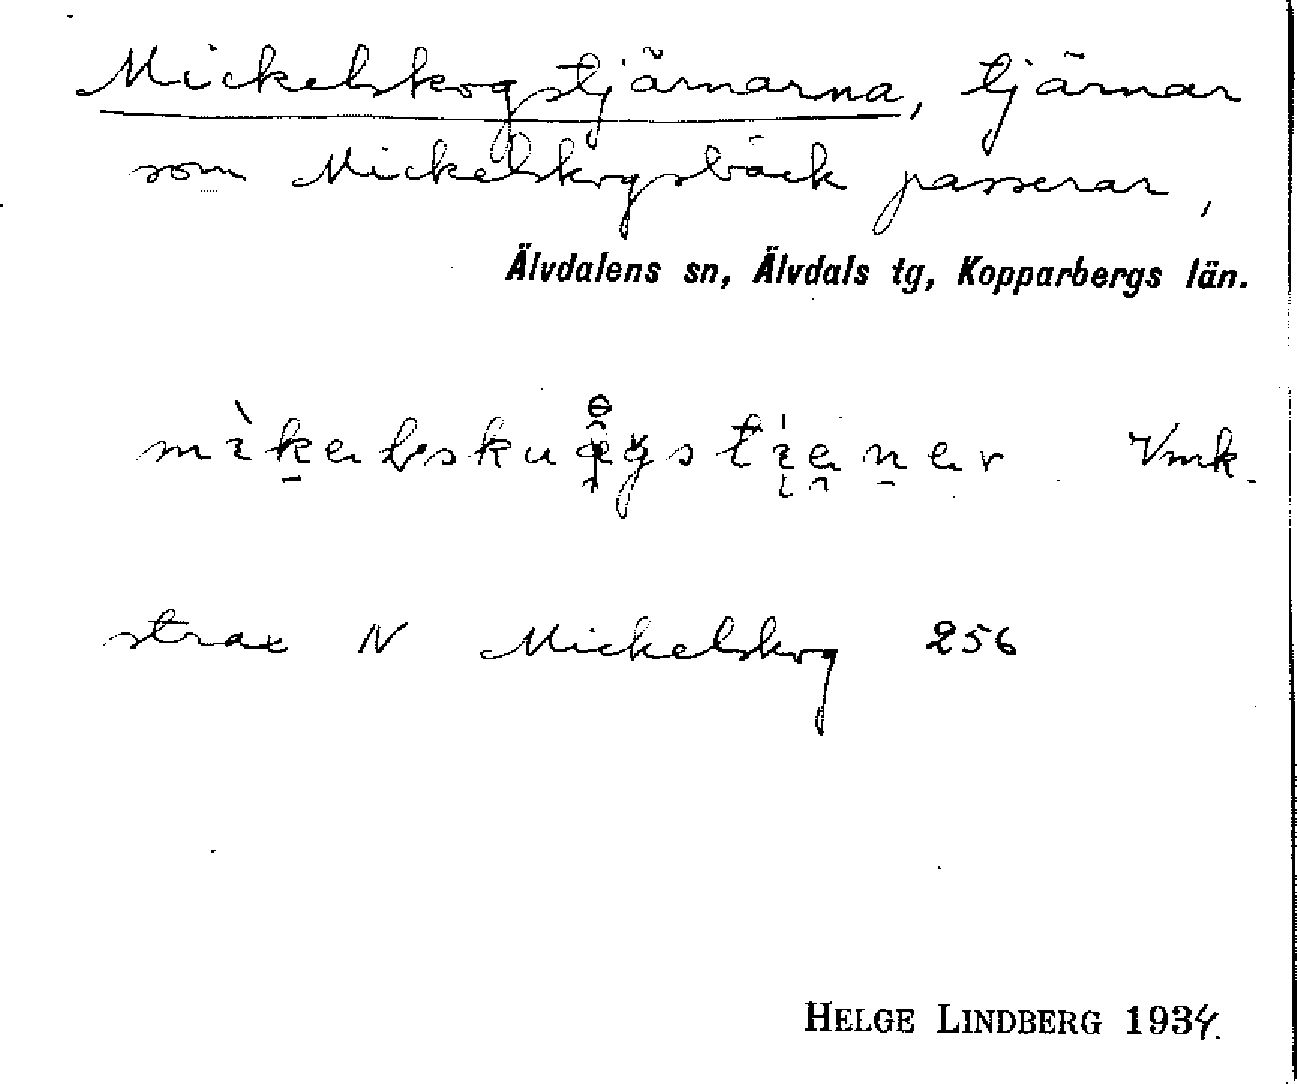 Mickelskogstjärnarna, tjärnar
som Mickelskogsbäck passerar,
Älvdalens sn, Älvdals tg, Kopparbergs län.
Vmk.
strax N Mickelskog 256
HELGE LINDBERG 1934.